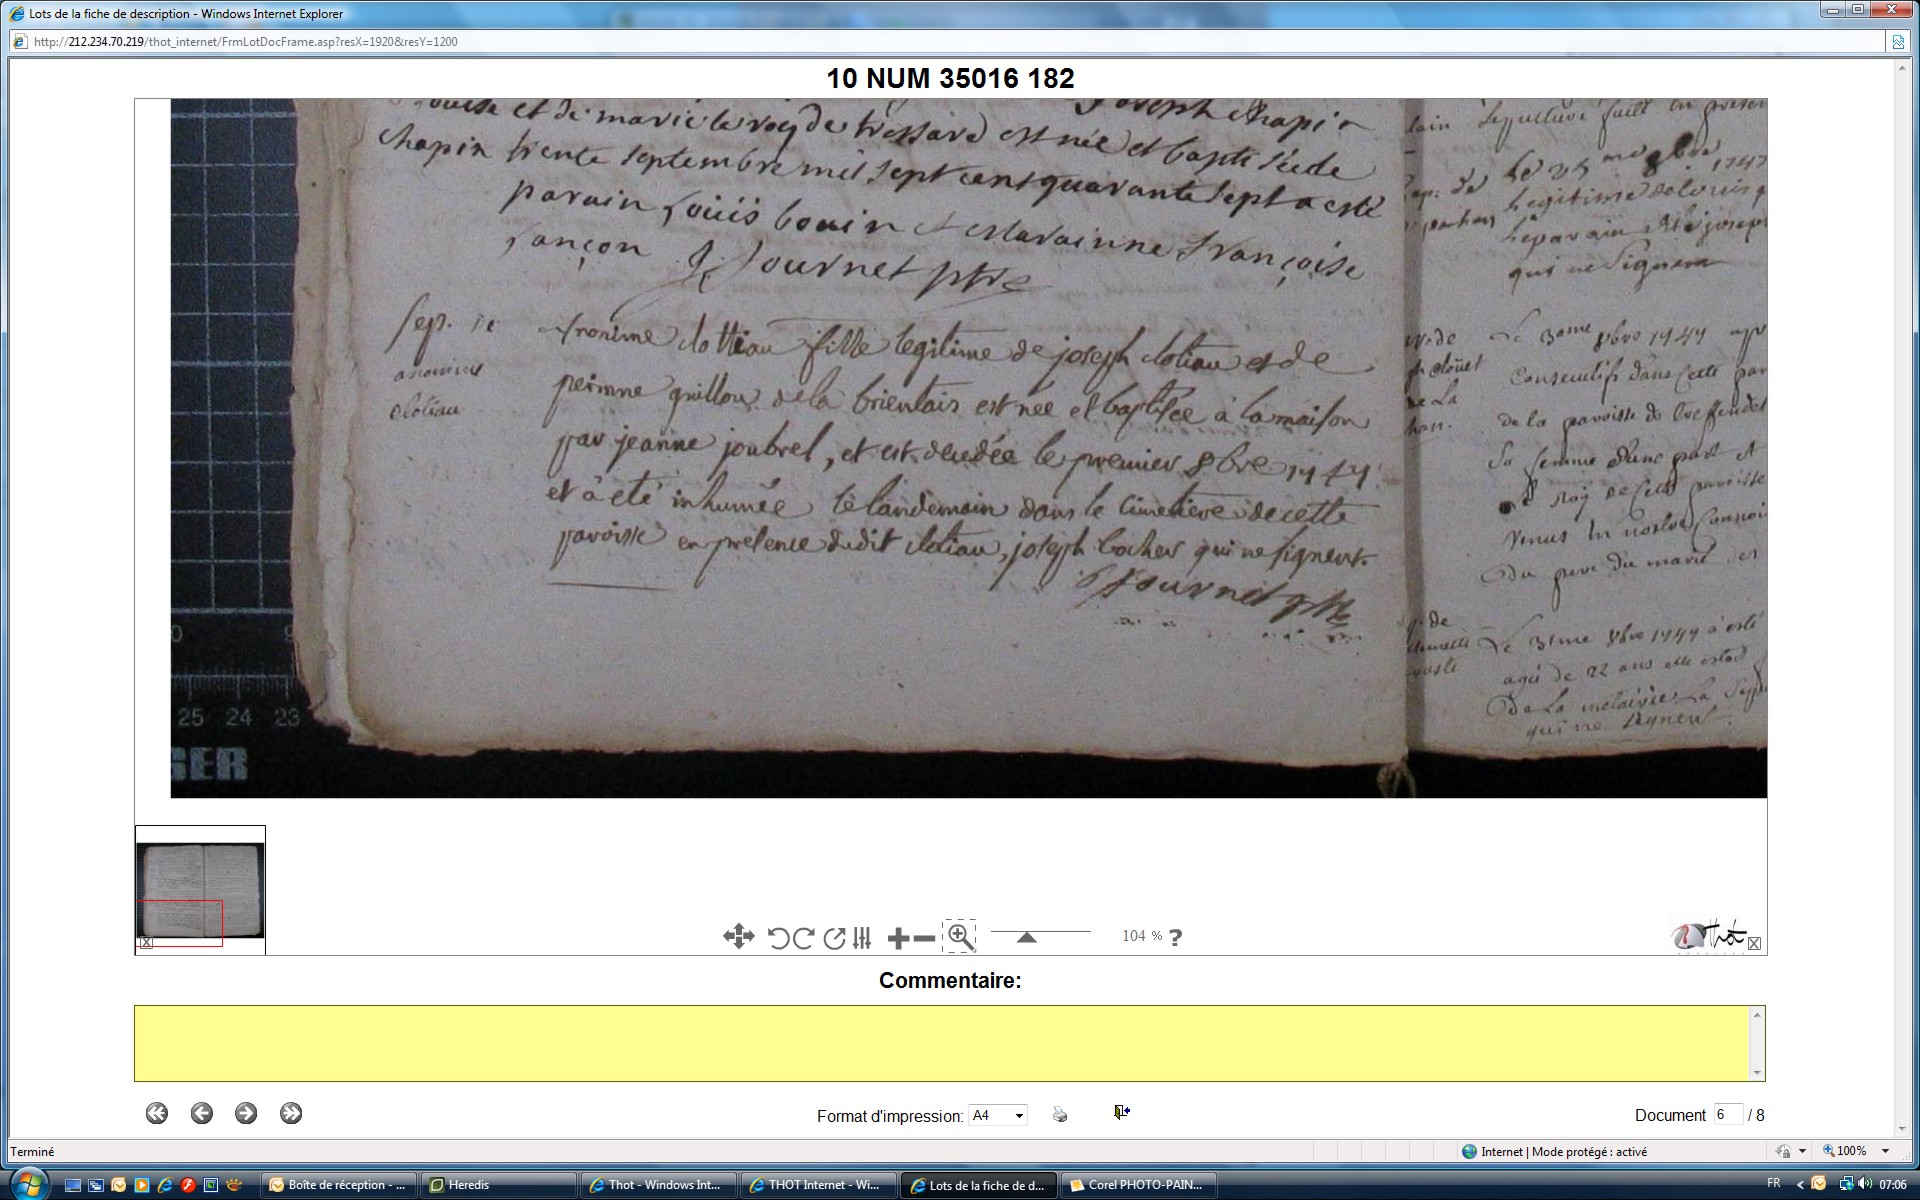 Lots de la fiche de description - Windows Internet Explorer
http://212.234.70.219/thot_internet/FrmLotDocFrame.asp?resX=1920&resY=1200
10 NUM 35016 182
Joseph chapin
et de marie le roy de tressard est née et baptisée de
chapin trente septembre mil sept cens quarante sept a esté
parain Louis bouin et maraine Françoise
J Journet ptre
Sep. de
anonime
clotiau
Anonime clottiau fille legitime de joseph clotiau et de
perinne guillou de la brientais est née et baptisée à la maison
par jeanne joubrel, et est decedée le premier 8bre 1747
et à été inhumée le landemain dans le cimetiere de cette
paroisse en presence dudit clotiau, joseph qui ne signent.
Journet ptre
Sepulture fait en presen
Le 25 me 8bre 1747
legitime de louis
le parain esté joseph
qui ne signent
Le 30me 8bre 1747
Consecutifs dans Cette par
de la paroisse de treffendel
Sa femme d'une part et
Roy de Cette paroisse
venus En nostre Connoi
Du pere du marié
Le 31me 8bre 1747 a esté
agée de 22 ans elle estoit
De La metairie La Sep
qui ne signent
0
25 24 23
GER
104 % ?
Thot
Commentaire:
Format d'impression: A4
Document 6 / 8
Terminé
Internet | Mode protégé : activé
100%
Boîte de réception - ...
Heredis
Thot - Windows Int...
THOT Internet - Wi...
Lots de la fiche de d...
Corel PHOTO-PAIN...
FR
07:06